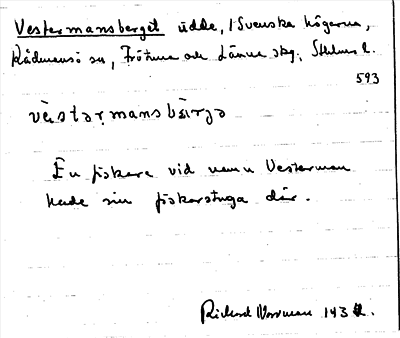 Vestermansberget udde, i Svenska högarna,
Rådmansö sn, Frötuna och Länna skg; Sthlms l.
593
västərmansbärjə
En fiskare vid namn Vesterman
hade sin fiskarstuga där.
Richard 193